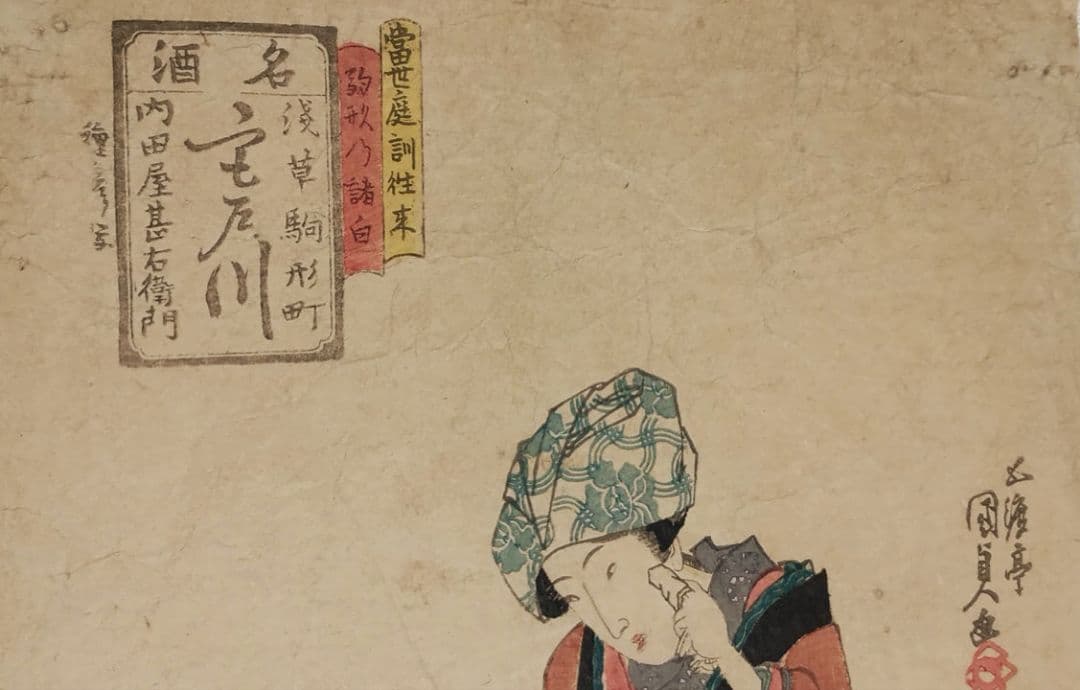 當世庭訓往来
駒形乃諸白
名酒
浅草駒形町
宮戸川
内田屋甚右衛門
種彦
五渡亭
國貞画